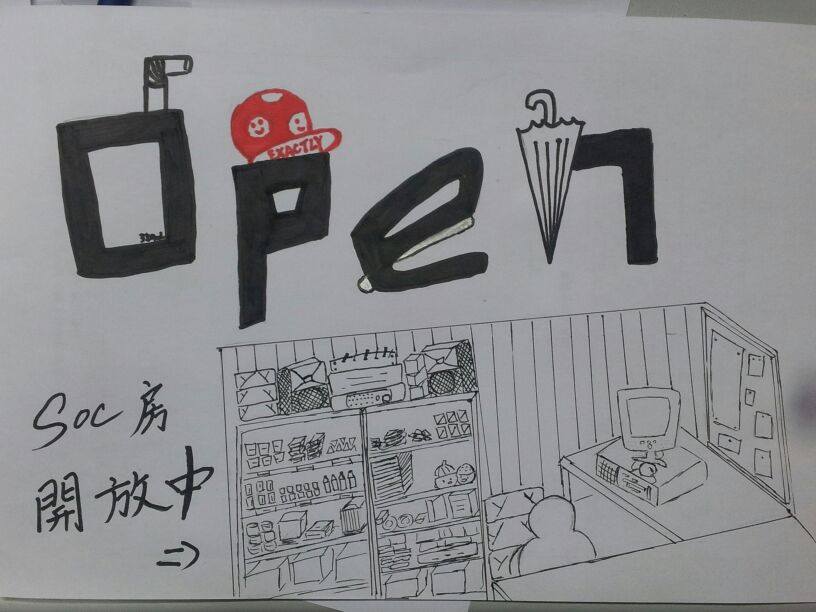 Open
EXACTLY
Soc 房
開放中
=>